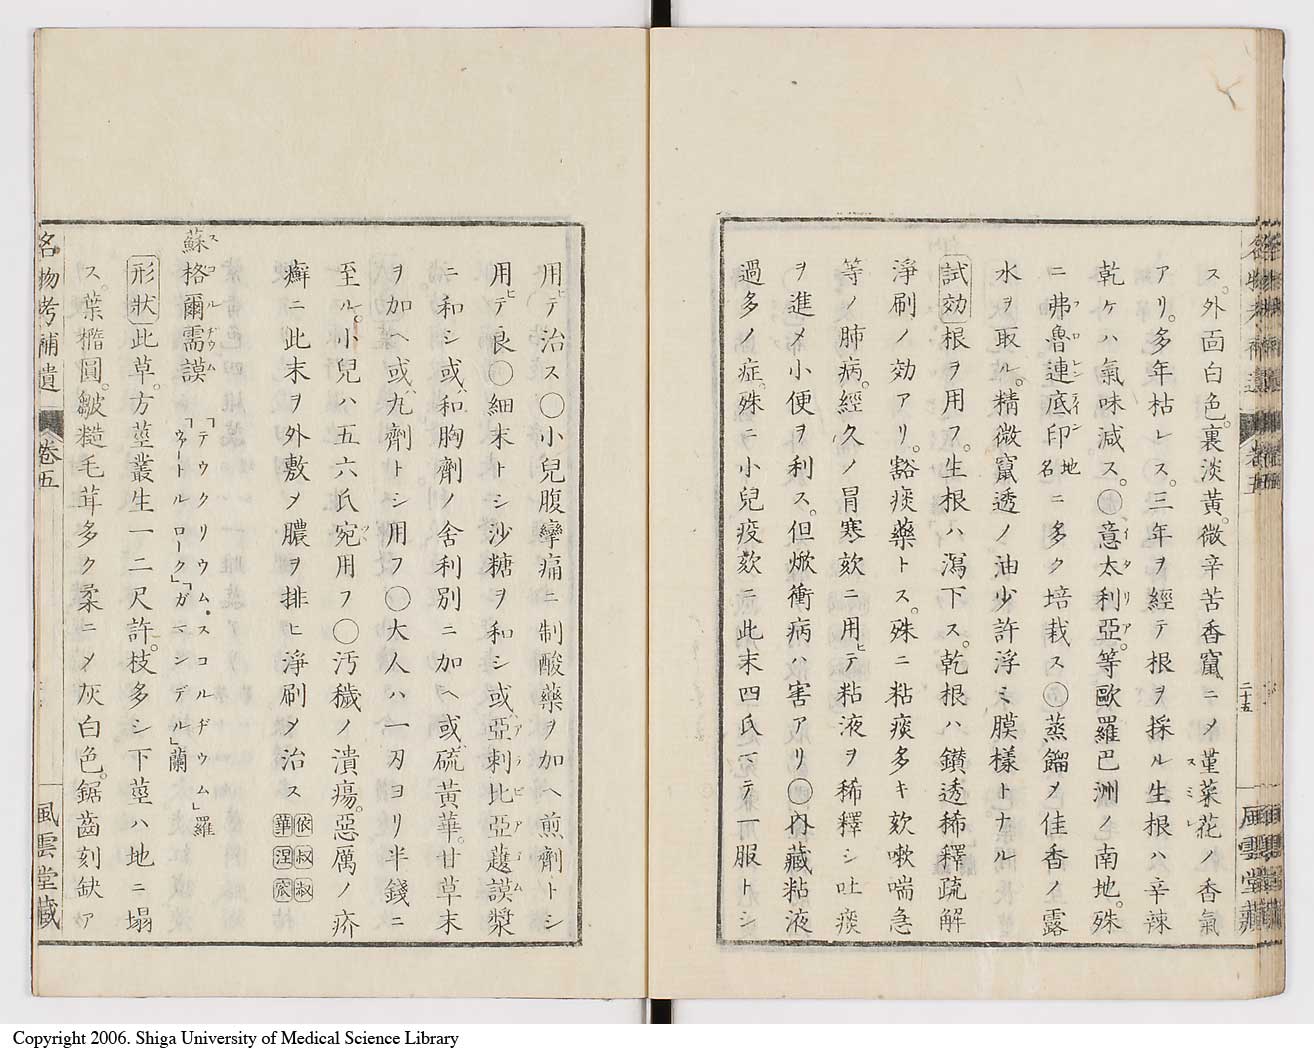 ス。外面白色。裏淡黄。微辛苦香竄ニメ菫菜花ノ香氣
アリ。多年枯レス。三年ヲ經テ根ヲ採ル生根ハ辛辣
乾ケハ氣味減ス。〇意太利亞。等歐羅巴洲ノ南地。殊
ニ弗魯連底印地名ニ多ク培栽ス〇蒸餾メ佳香ノ露
水ヲ取ル。精微竄透ノ油少許浮ミ膜樣トナル
試効 根ヲ用フ。生根ハ瀉下ス。乾根ハ鑚透稀釋疏解
淨刷ノ効アリ。豁痰藥トス。殊ニ粘痰多キ欬嗽喘急
等ノ肺病。經久ノ冒寒欬ニ用ヒテ粘液ヲ稀釋シ吐痰
ヲ進メ小便ヲ利ス。但焮衝病ハ害アリ〇内藏粘液
過多ノ症。殊ニ小兒疫欬ニ此末四氏マテ一服トシ
名物考補遺 卷五 二十五 風雲堂藏
用ヒテ治ス〇小兒腹攣痛ニ制酸藥ヲ加ヘ煎劑トシ
用ヒテ良〇細末トシ沙糖ヲ和シ或亞刺比亞護謨漿
ニ和シ或和胸劑ノ舎利別ニ加ヘ或硫黄華。甘草末
ヲ加ヘ或丸劑トシ用フ〇大人ハ一刃ヨリ半錢ニ
至ル。小兒ハ五六氏宛用フ〇汚穢ノ潰瘍。惡厲ノ疥
癬ニ此末ヲ外敷メ膿ヲ排ヒ淨刷メ治ス 依叔叔華涅宸
蘇格爾需謨 「テウクリウム、スコルヂウム」羅「ウァートルローク」「ガマンデル」蘭
形狀 此草。方莖叢生一二尺許。枝多シ下莖ハ地ニ塌
ス。葉橢圓。皺糙毛茸多ク柔ニメ灰白色。鋸齒刻缺ア
名物考補遺 卷五 風雲堂藏
Copyright 2006. Shiga University of Medical Science Library